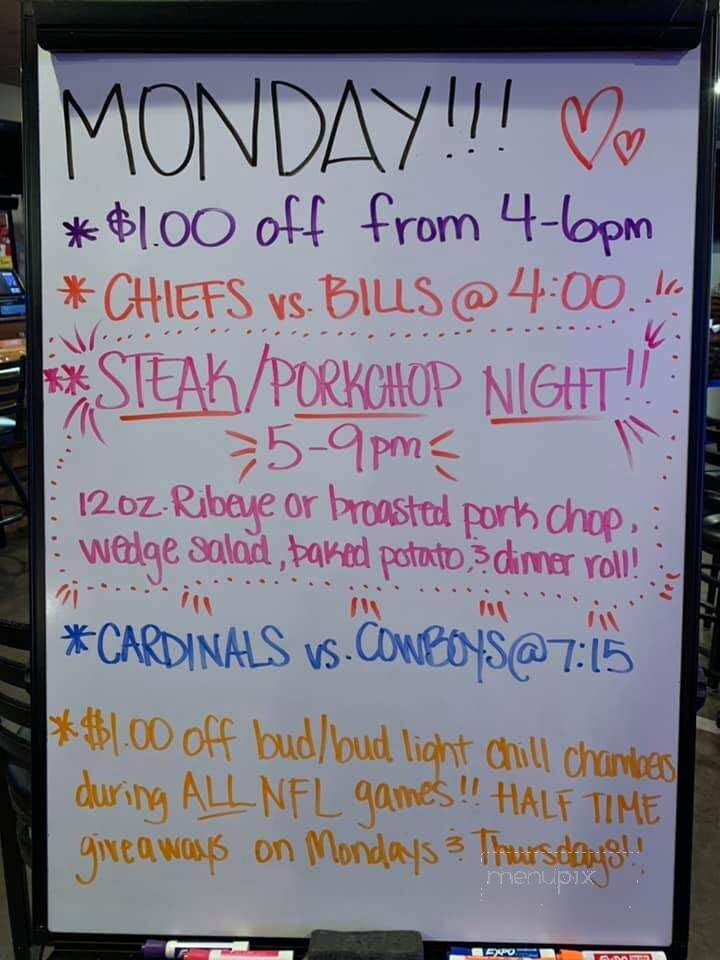 MONDAY!!!
* $1.00 off from 4-6pm
* CHIEFS vs. BILLS @ 4:00
** STEAK/PORKCHOP NIGHT!!
5-9pm
12oz. Ribeye or broasted pork chop,
wedge salad, baked potato, & dinner roll!
* CARDINALS vs. COWBOYS @ 7:15
* $1.00 off bud/bud light chill chambers
during ALL NFL games!! HALF TIME
giveaways on Mondays & Thursdays!!
menupix
EXPO